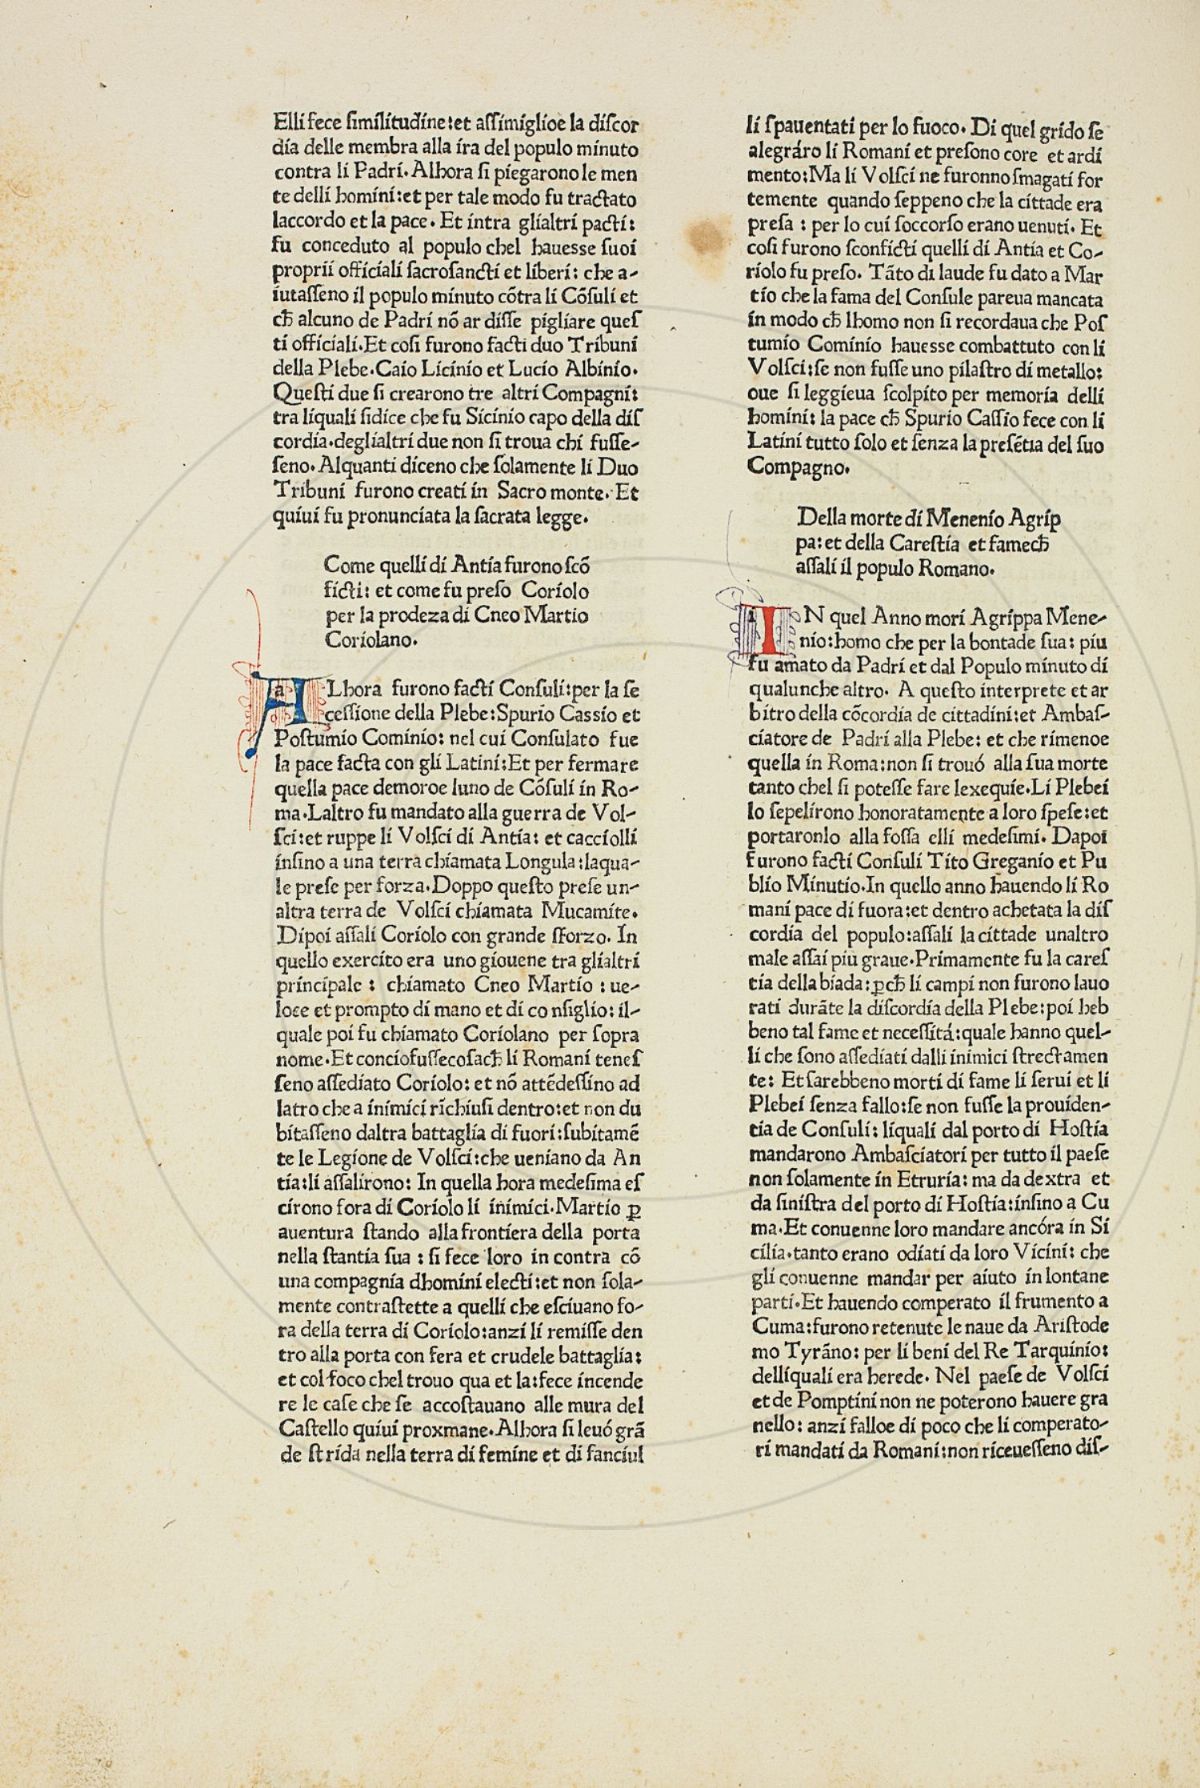 Elli fece ſimilitudine:et aſſimiglioe la diſcor
dia delle membra alla ira del populo minuto
contra li Padri. Alhora ſi piegarono le men
te delli homini:et per tale modo fu tractato
laccordo et la pace. Et intra glialtri pacti:
fu conceduto al populo chel haueſſe ſuoi
proprii officiali sacroſancti et liberi: che a-
iutaſſeno il populo minuto cōtra li Cōſuli et
cħ alcuno de Padri nō ar diſſe pigliare queſ
ti officiali.Et coſi furono facti duo Tribuni
della Plebe.Caio Licinio et Lucio Albinio.
Queſti due ſi crearono tre altri Compagni:
tra liquali ſidice che fu Sicinio capo della diſ
cordia.deglialtri due non ſi troua chi fuſſe-
ſeno. Alquanti diceno che ſolamente li Duo
Tribuni furono creati in Sacro monte. Et
quiui fu pronunciata la ſacrata legge.
Come quelli di Antia furono ſcō
ficti: et come fu preſo Coriolo
per la prodeza di Cneo Martio
Coriolano.
a ALhora furono facti Conſuli:per la ſe
ceſſione della Plebe:Spurio Caſſio et
Poſtumio Cominio: nel cui Conſulato fue
la pace facta con gli Latini:Et per fermare
quella pace demoroe luno de Cōſuli in Ro-
ma.Laltro fu mandato alla guerra de Vol-
ſci:et ruppe li Volſci di Antia: et cacciolli
inſino a una terra chiamata Longula:laqua-
le preſe per forza.Doppo queſto preſe un-
altra terra de Volſci chiamata Mucamite.
Dipoi aſſali Coriolo con grande sforzo. In
quello exercito era uno giouene tra glialtri
principale : chiamato Cneo Martio : ue-
loce et prompto di mano et di co nſiglio: il-
quale poi fu chiamato Coriolano per ſopra
nome.Et conciofuſſecoſacħ li Romani teneſ
ſeno aſſediato Coriolo: et nō attēdeſſino ad
latro che a inimici richiuſi dentro:et non du
bitaſſeno daltra battaglia di fuori:ſubitamē
te le Legione de Volſci:che ueniano da An
tia:li aſſalirono: In quella hora medeſima eſ
cirono fora di Coriolo li inimici.Martio ꝑ
auentura ſtando alla frontiera della porta
nella ſtantia ſua : ſi fece loro in contra cō
una compagnia dhomini electi:et non ſola-
mente contraſtette a quelli che eſciuano fo-
ra della terra di Coriolo:anzi li remiſſe den
tro alla porta con fera et crudele battaglia:
et col foco chel trouo qua et la:fece incende
re le caſe che ſe accoſtauano alle mura del
Caſtello quiui proxmane.Alhora ſi leuó grā
de ſtrida nella terra di femine et di fanciul
li ſpauentati per lo fuoco. Di quel grido ſe
alegráro li Romani et preſono core et ardi
mento:Ma li Volſci ne furonno ſmagati for
temente quando ſeppeno che la cittade era
preſa : per lo cui ſoccorſo erano uenuti. Et
coſi furono ſconficti quelli di Antia et Co-
riolo fu preſo. Tāto di laude fu dato a Mar
tio che la fama del Conſule pareua mancata
in modo cħ lhomo non ſi recordaua che Poſ
tumio Cominio haueſſe combattuto con li
Volſci:ſe non fuſſe uno pilaſtro di metallo:
oue ſi leggieua ſcolpito per memoria delli
homini: la pace cħ Spurio Caſſio fece con li
Latini tutto ſolo et ſenza la preſētia del ſuo
Compagno.
Della morte di Menenio Agrip
pa:et della Careſtia et famecħ
aſſali il populo Romano.
i IN quel Anno mori Agrippa Mene-
nio:homo che per la bontade ſua: piu
fu amato da Padri et dal Populo minuto di
qualunche altro. A queſto interprete et ar
bitro della cōcordia de cittadini:et Ambaſ-
ciatore de Padri alla Plebe: et che rimenoe
quella in Roma:non ſi trouó alla ſua morte
tanto chel ſi poteſſe fare lexequie.Li Plebei
lo ſepelirono honoratamente a loro ſpeſe:et
portaronlo alla foſſa elli medeſimi. Dapoi
furono facti Conſuli Tito Greganio et Pu
blio Minutio.In quello anno hauendo li Ro
mani pace di fuora:et dentro achetata la diſ
cordia del populo:aſſali la cittade unaltro
male aſſai piu graue.Primamente fu la careſ
tia della biada: ꝑcħ li campi non furono lauo
rati durāte la diſcordia della Plebe:poi heb
beno tal fame et neceſſitá:quale hanno quel-
li che ſono aſſediati dalli inimici ſtrectamen
te: Et ſarebbeno morti di fame li ſerui et li
Plebei ſenza fallo:ſe non fuſſe la prouiden-
tia de Conſuli: liquali dal porto di Hoſtia
mandarono Ambaſciatori per tutto il paeſe
non ſolamente in Etruria: ma da dextra et
da ſiniſtra del porto di Hoſtia:inſino a Cu
ma.Et conuenne loro mandare ancóra in Si
cilia.tanto erano odiati da loro Vicini: che
gli conuenne mandar per aiuto in lontane
parti.Et hauendo comperato il frumento a
Cuma:furono retenute le naue da Ariſtode
mo Tyrāno: per li beni del Re Tarquinio:
delliquali era herede. Nel paeſe de Volſci
et de Pomptini non ne poterono hauere gra
nello: anzi falloe di poco che li comperato-
ri mandati da Romani:non riceueſſeno diſ-